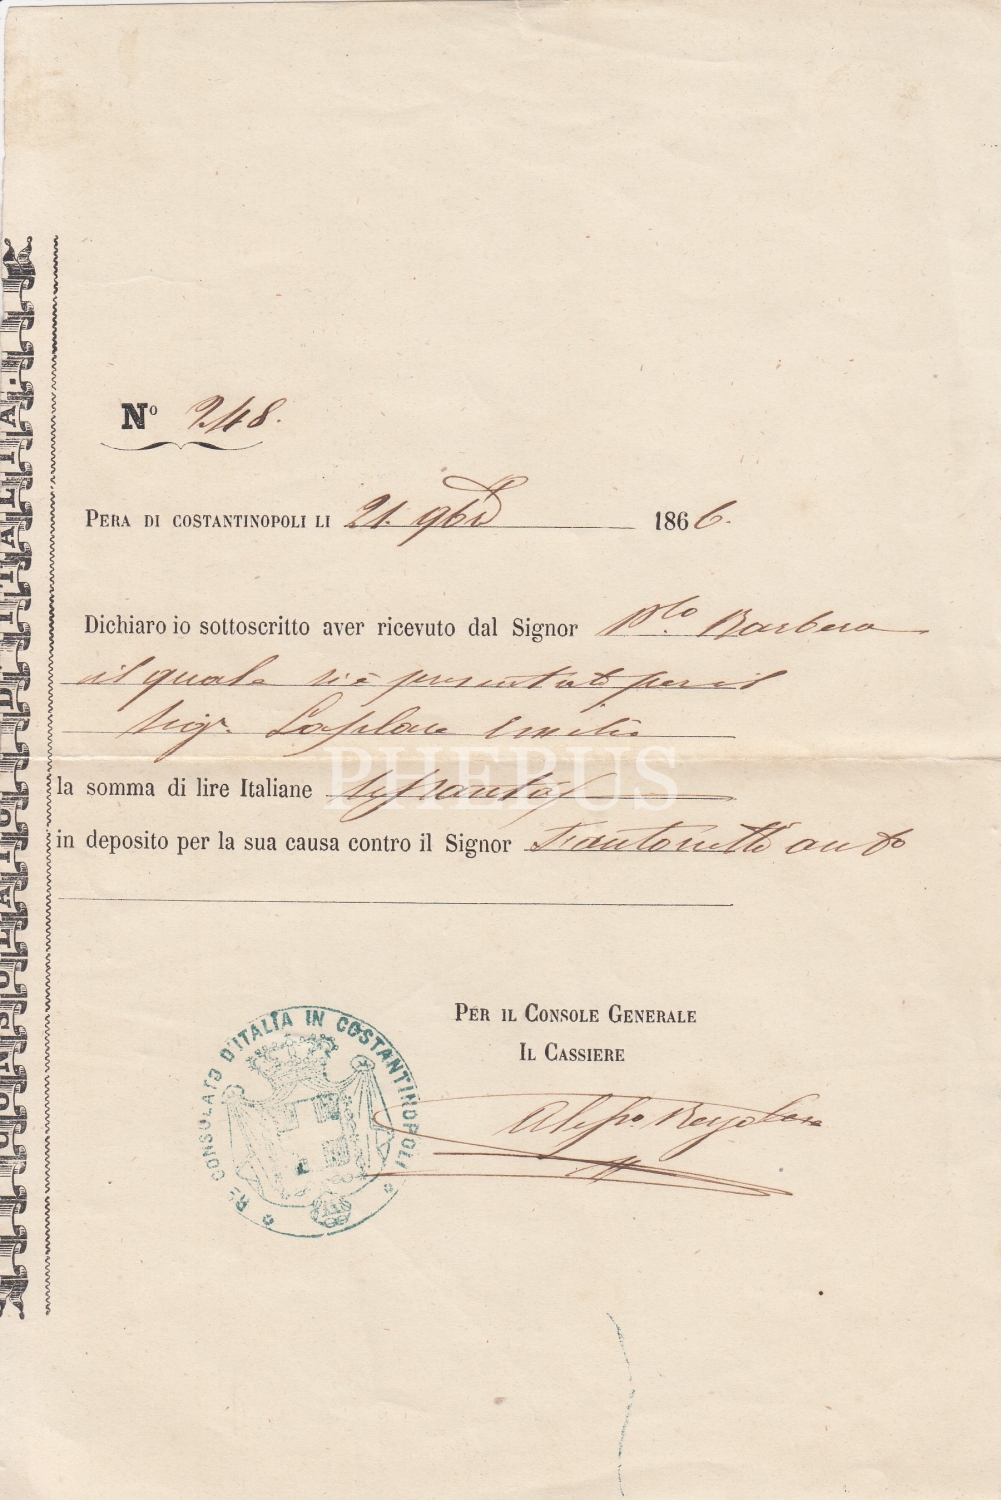 Nº 248.
PERA DI COSTANTINOPOLI LI 21. 9bre 1866.
Dichiaro io sottoscritto aver ricevuto dal Signor Barbera
il quale si è presentato per il
Sigr. Laplace Emilio
la somma di lire Italiane
in deposito per la sua causa contro il Signor Fantonetti
PHEBUS
PER IL CONSOLE GENERALE
IL CASSIERE
Rº CONSOLATO D'ITALIA IN COSTANTINOPOLI